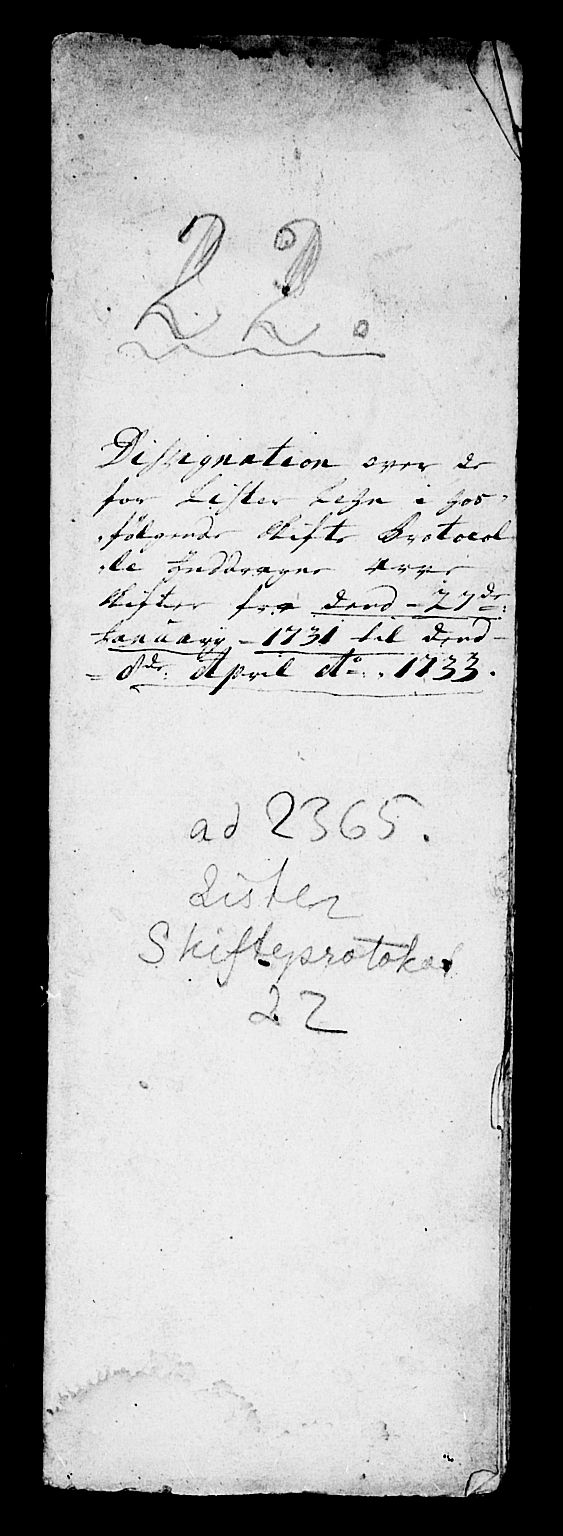 22.
Dissignation over de
for Lister Lehn i hos-
følgende Skifte Protocol
le inddragne Arve
Skifter fra dend - 27de
January - 1731 til dend -
- 8de: April Ao: 1733.
ad 2365.
Lister
Skifteprotokol
22